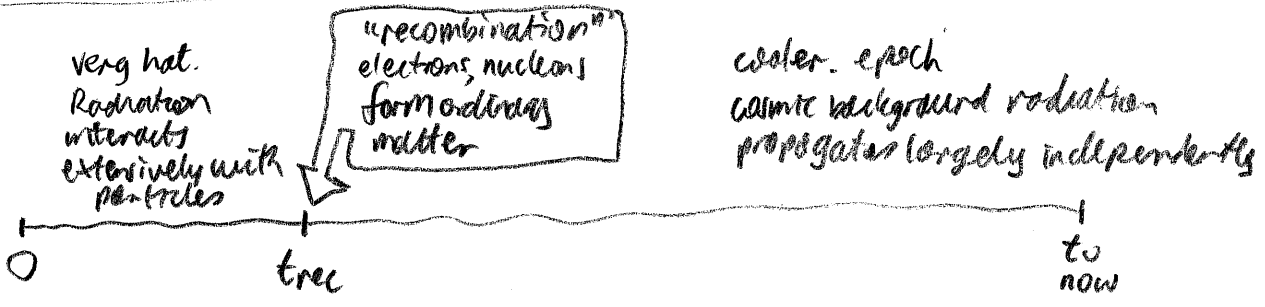 very hot.
Radiation
interacts
extensively with
particles
"recombination"
electrons, nucleons
form ordinary
matter
cooler. epoch
cosmic background radiation
propogates largely independently
0
trec
to
now